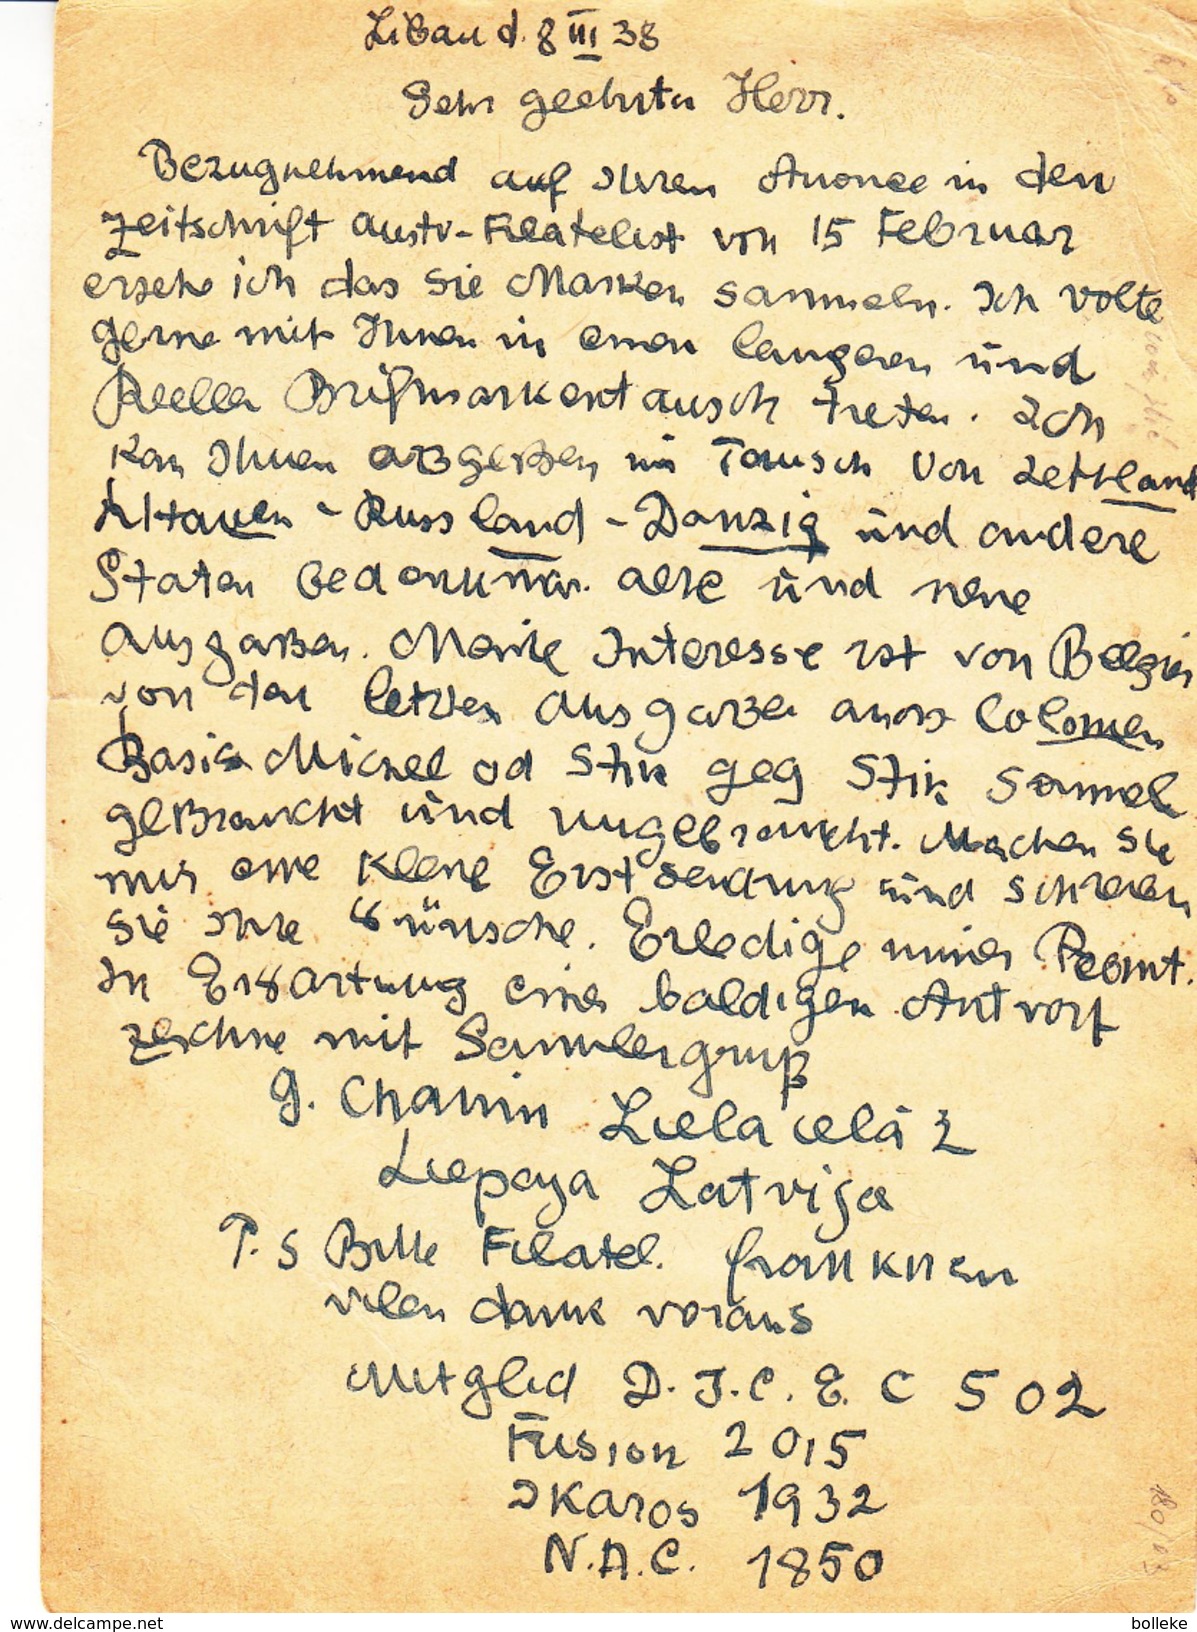 Libau d. 8 III 38
Sehr geehrter Herr.
Bezugnehmend auf Ihren Anonce in den
Zeitschrift Austr-Filatelist von 15 Februar
ersehe ich das Sie Marken sammeln. Ich volte
gerne mit Ihnen in einen langeren und
Reellen Brifmarkentausch treten. Ich
kan Ihnen abgeben im Tausch von Lettland
Litauen - Russland - Danzig und andere
Staten Gedenkmar. alte und neue
Ausgaben. Meine Interesse ist von Belgien
von den letzten Ausgaben auch Colonien
Basis Michel od Stik geg Stik Sammel
gebraucht und ungebraucht. Machen Sie
mir eine kleine Erstsendung und schreiben
Sie Ihre Wünsche. Erledige immer Promt.
In Erwartung einer baldigen Antvort
zeichne mit Sammlergruß
G. Chamin Liela iela 2
Liepaja Latvija
P. S Bitte Filatel. frankiren
vilen dank voraus
Mitglid D. I. C. E. C 502
Fusion 2015
Ikaros 1932
N.A.C. 1850
180/03
https://www.delcampe.net
bolleke